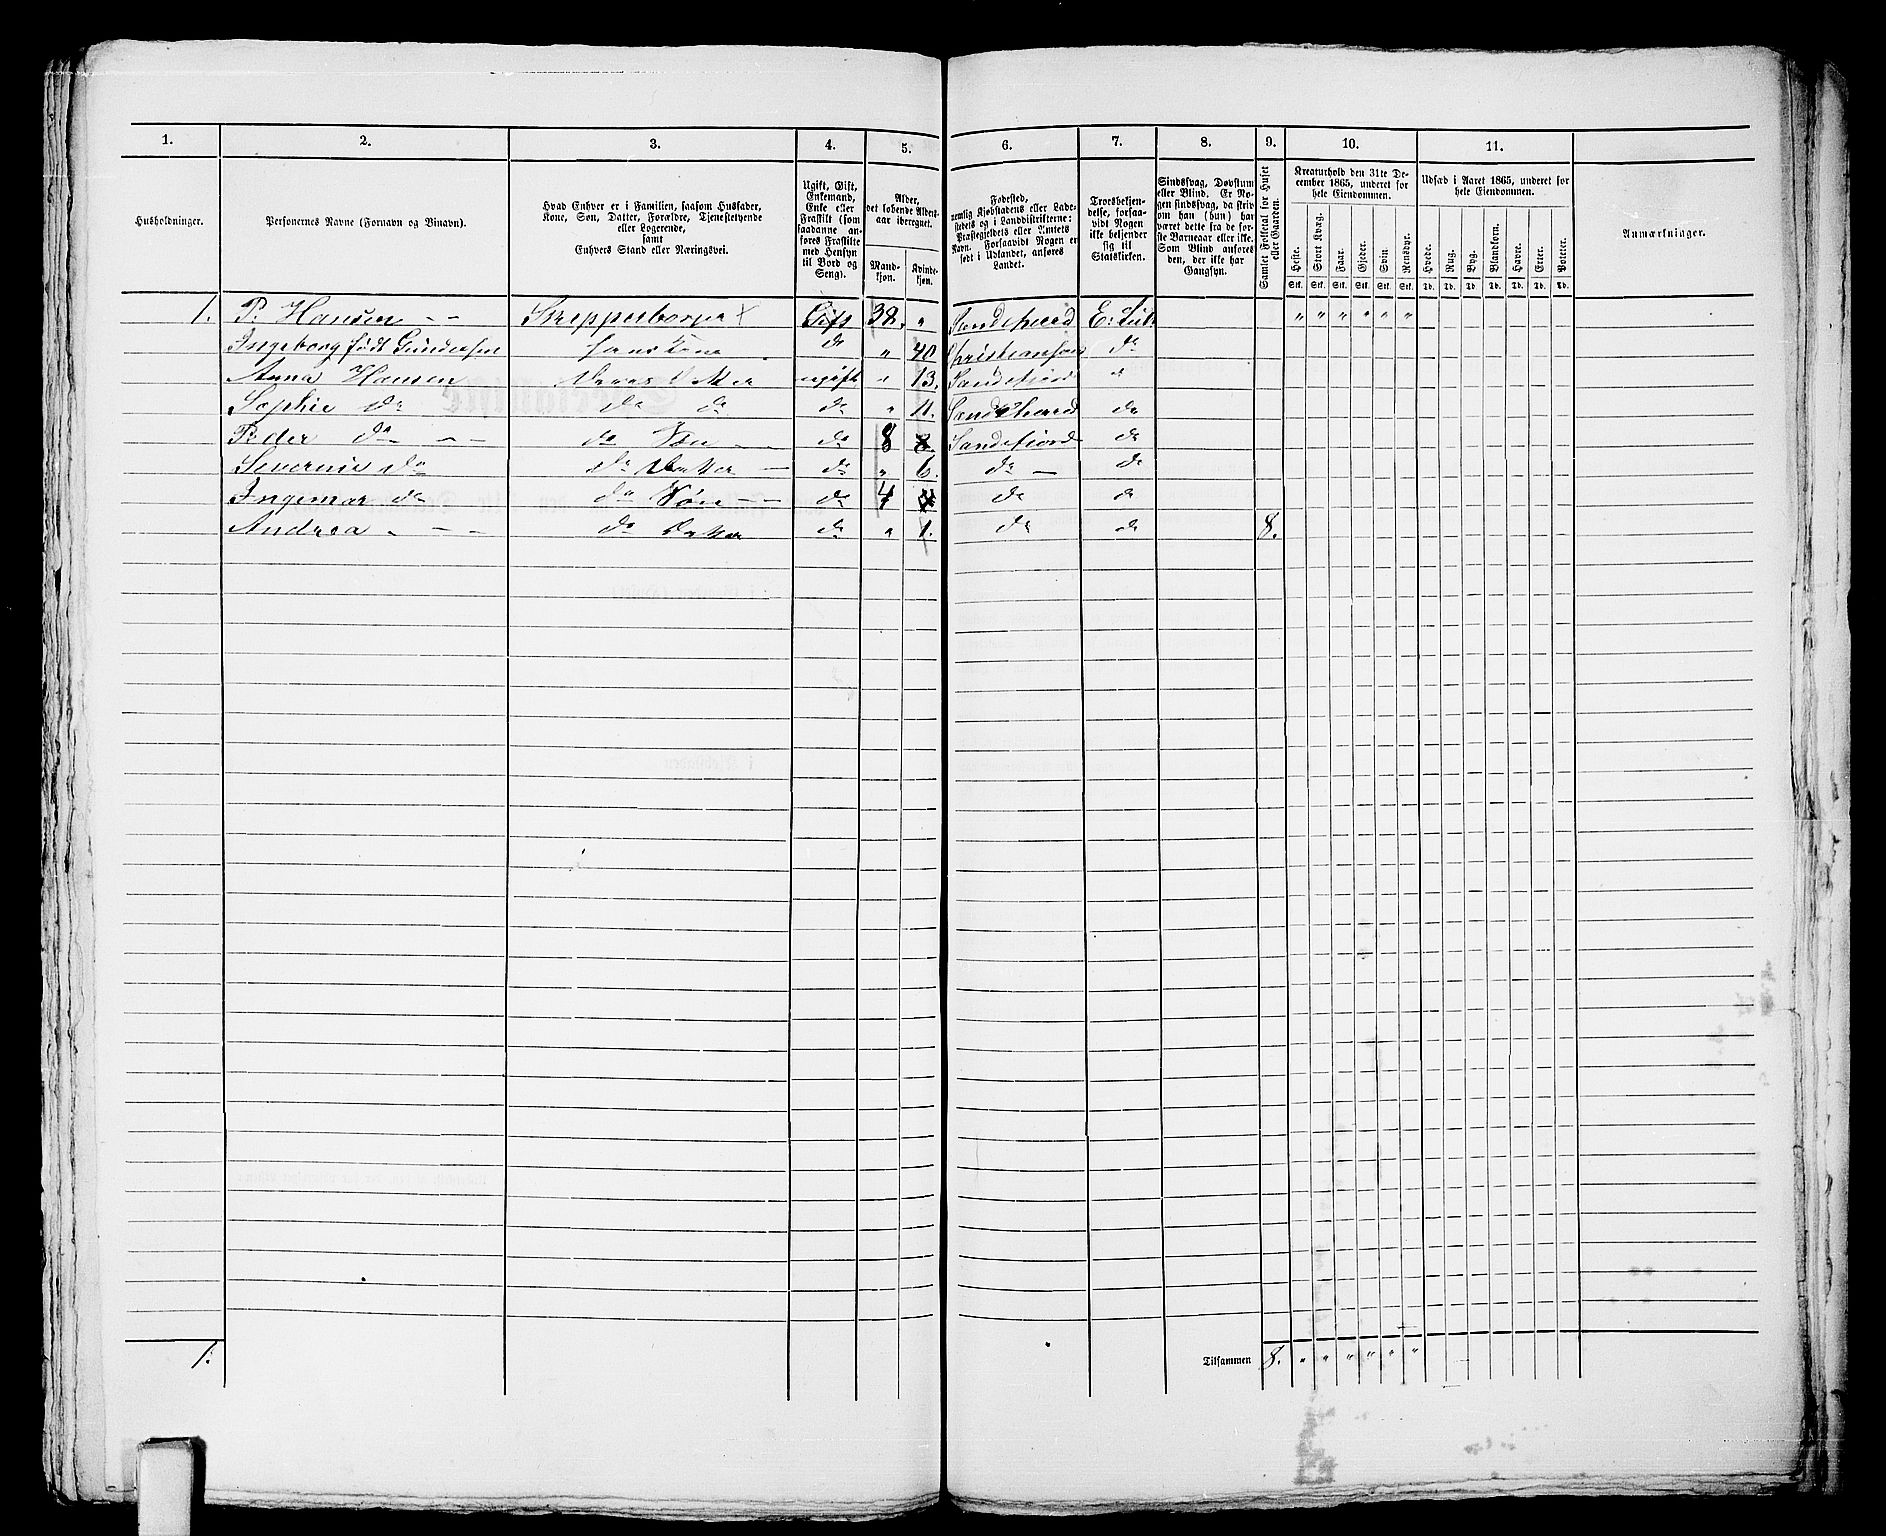 1. 2. 3. 4. 5. 6. 7. 8. 9. 10. 11.
Husholdninger.
Personernes Navne (Fornavn og Binavn).
Hvad Enhver er i Familien, saasom Husfader,
Kone, Søn, Datter, Forældre, Tjenestetyende
eller Logerende,
samt
Enhvers Stand eller Næringsvei.
Ugift, Gift,
Enkemand,
Enke eller
Fraskilt (som
saadanne an-
føres Fraskilte
med Hensyn
til Bord og
Seng).
Alder,
det løbende Alders-
aar iberegnet.
Mand-
kjøn.
Kvinde-
kjøn.
Fødested,
nemlig Kjøbstadens eller Lade-
stedets og i Landdistrikterne:
Præstegjeldets eller Amtets
Navn. Forsaavidt Nogen er
født i Udlandet, anføres
Landet.
Troesbekjen-
delse, forsaa-
vidt Nogen
ikke bekjender
sig til
Statskirken.
Sindssvag, Døvstum
eller Blind. Er No-
gen sindssvag, da skriv
om han (hun) har
været dette fra de før-
ste Barneaar eller ikke.
Som Blind anføres
den, der ikke har
Gangsyn.
Samlet Folketal for Huset
eller Gaarden.
Kreaturhold den 31te De-
cember 1865, underet for
hele Eiendommen.
Heste. Stort Kvæg. Faar. Gjeder. Svin. Rensdyr.
Stk. Stk. Stk. Stk. Stk. Stk.
Udsæd i Aaret 1865, underet for
hele Eiendommen.
Hvede. Rug. Byg. Blandkorn. Havre. Erter. Poteter.
Td. Td. Td. Td. Td. Td. Td.
Anmærkninger.
1. P. Hansen - - Skipperborger x Gift 38. " Sandeherred E: Luth. " " " " " "
Ingeborg født Gundersen hans Kone do " 40. Christianssand do
Anna Hansen Deres Datter ugift " 13. Sandefiord "
Sophie do do do do " 11. Sandeherred do
Peder do - - do Søn - - do 8 8. Sandefiord do
Severine do do Datter - do " 6. do - do
Ingemar do do Søn - - do 4 4 do do
Andrea - - - do Datter do " 1. do do 8.
1. Tilsammen 8. " " " " " "